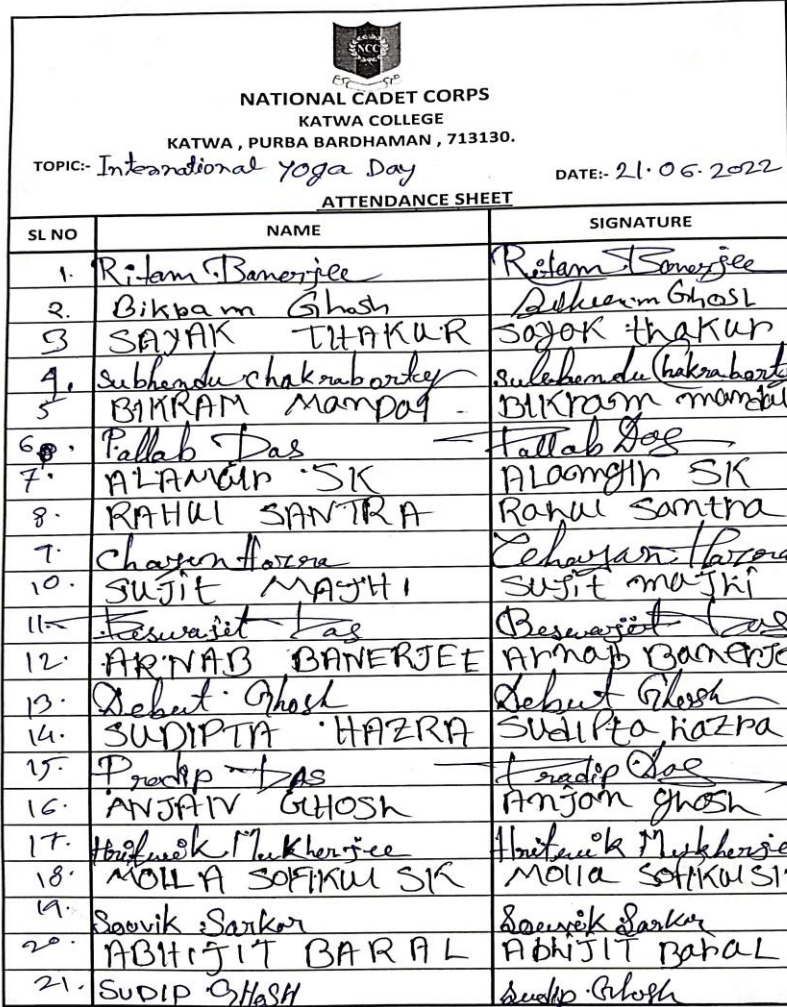 NCC
NATIONAL CADET CORPS
KATWA COLLEGE
KATWA , PURBA BARDHAMAN , 713130.
TOPIC:- International Yoga Day DATE:- 21.06.2022
ATTENDANCE SHEET
SL NO NAME SIGNATURE
1. Ritam Banerjee Ritam Banerjee
2. Bikram Ghosh Bikram Ghosh
3 SAYAK THAKUR Sayak thakur
4. Subhendu chakraborty Subhendu Chakraborty
5 BIKRAM Mandal Bikram mandal
6. Pallab Das Pallab Das
7. ALAMGIR SK ALAMGIR SK
8. RAHUL SANTRA Rahul Santra
9. Chayan Hazra Chayan Hazra
10. SUJIT MAJHI SUJIT majhi
11 Biswajit Das Biswajit Das
12. ARNAB BANERJEE Arnab Banerje
13. Debut Ghosh Debut Ghosh
14. SUDIPTA HAZRA Sudipta hazra
15. Pradip Das Pradip Das
16. ANJAN GHOSH Anjan ghosh
17. Hritwik Mukherjee Hritwik Mukherjee
18. MOLLA SOFIKUL SK Molla SOFIKUL SK
19. Souvik Sarkar Souvik Sarkar
20. ABHIJIT BARAL Abhijit Baral
21. SUDIP GHOSH Sudip Ghosh